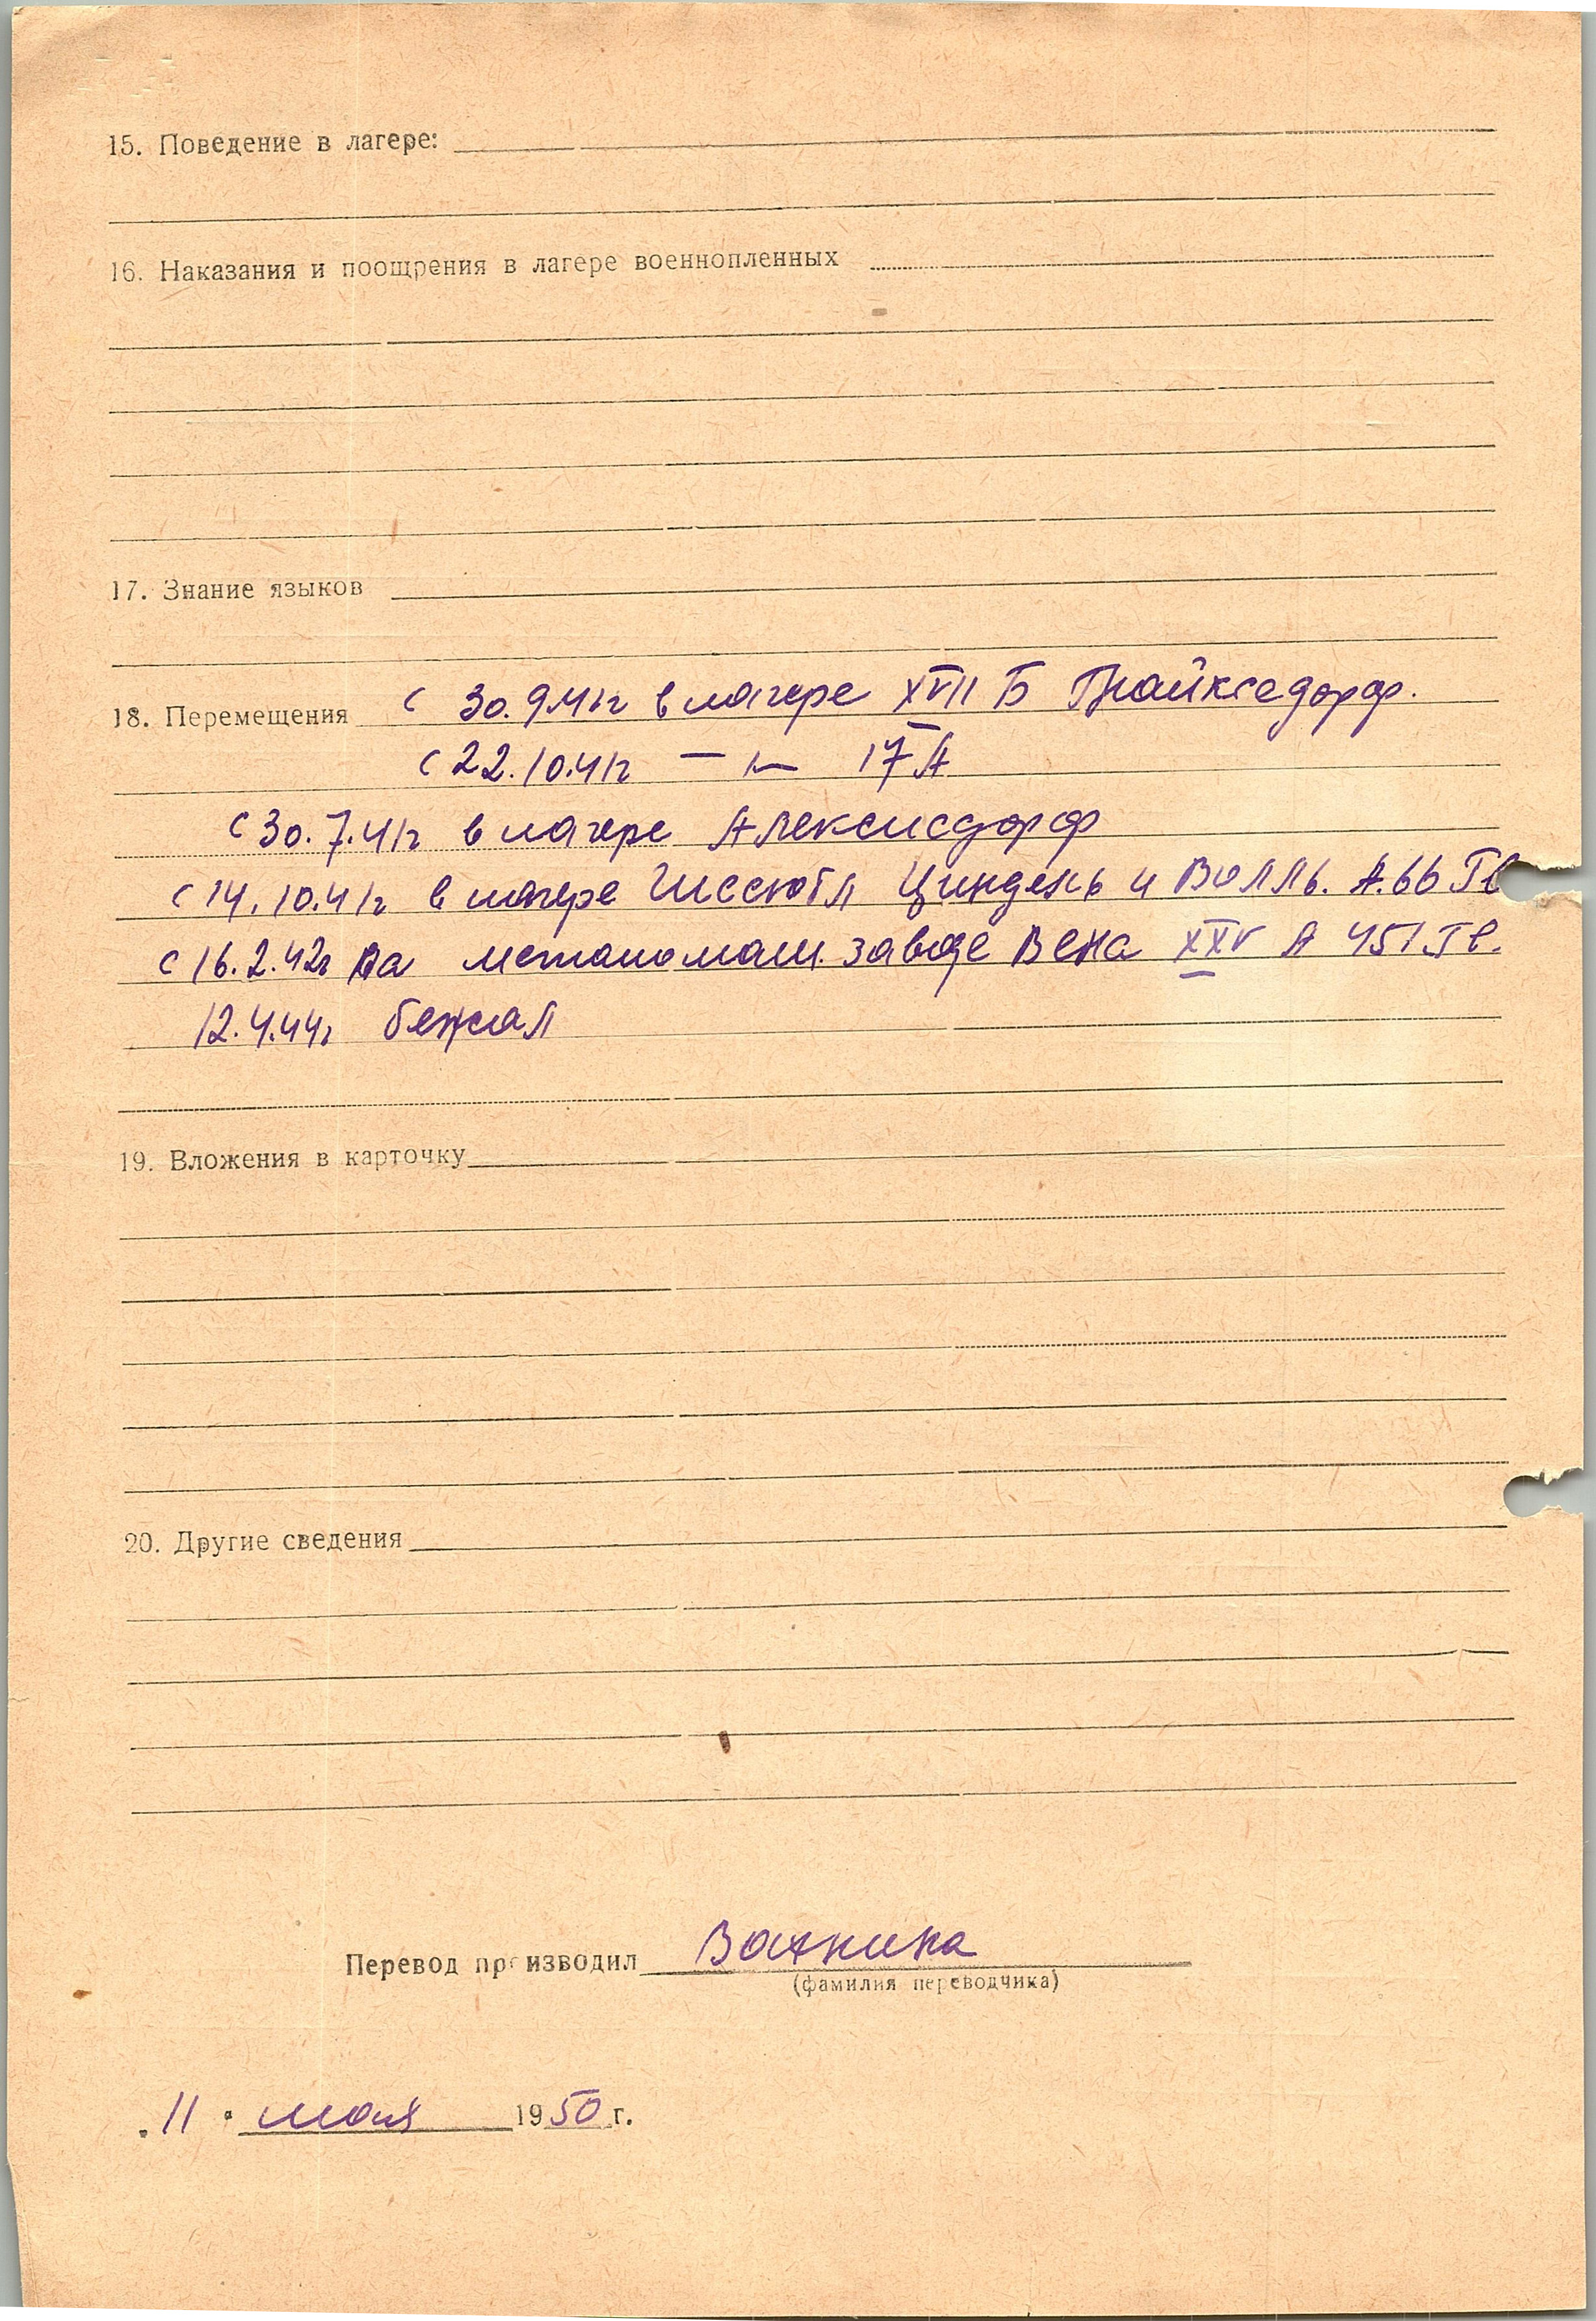 15. Поведение в лагере:
16. Наказания и поощрения в лагере военнопленных
17. Знание языков
18. Перемещения с 30.9.41г в лагере XVII Б Гнайкседорф.
с 22.10.41г — " — 17 А
с 30.7.41г в лагере Алексисдорф
с 14.10.41г в лагере Циндель и Волль. А.66 Гв
с 16.2.42г на заводе Вена XXV А 451 Гв.
12.4.44г бежал
19. Вложения в карточку
20. Другие сведения
Перевод производил
(фамилия переводчика)
„11" мая 1950 г.